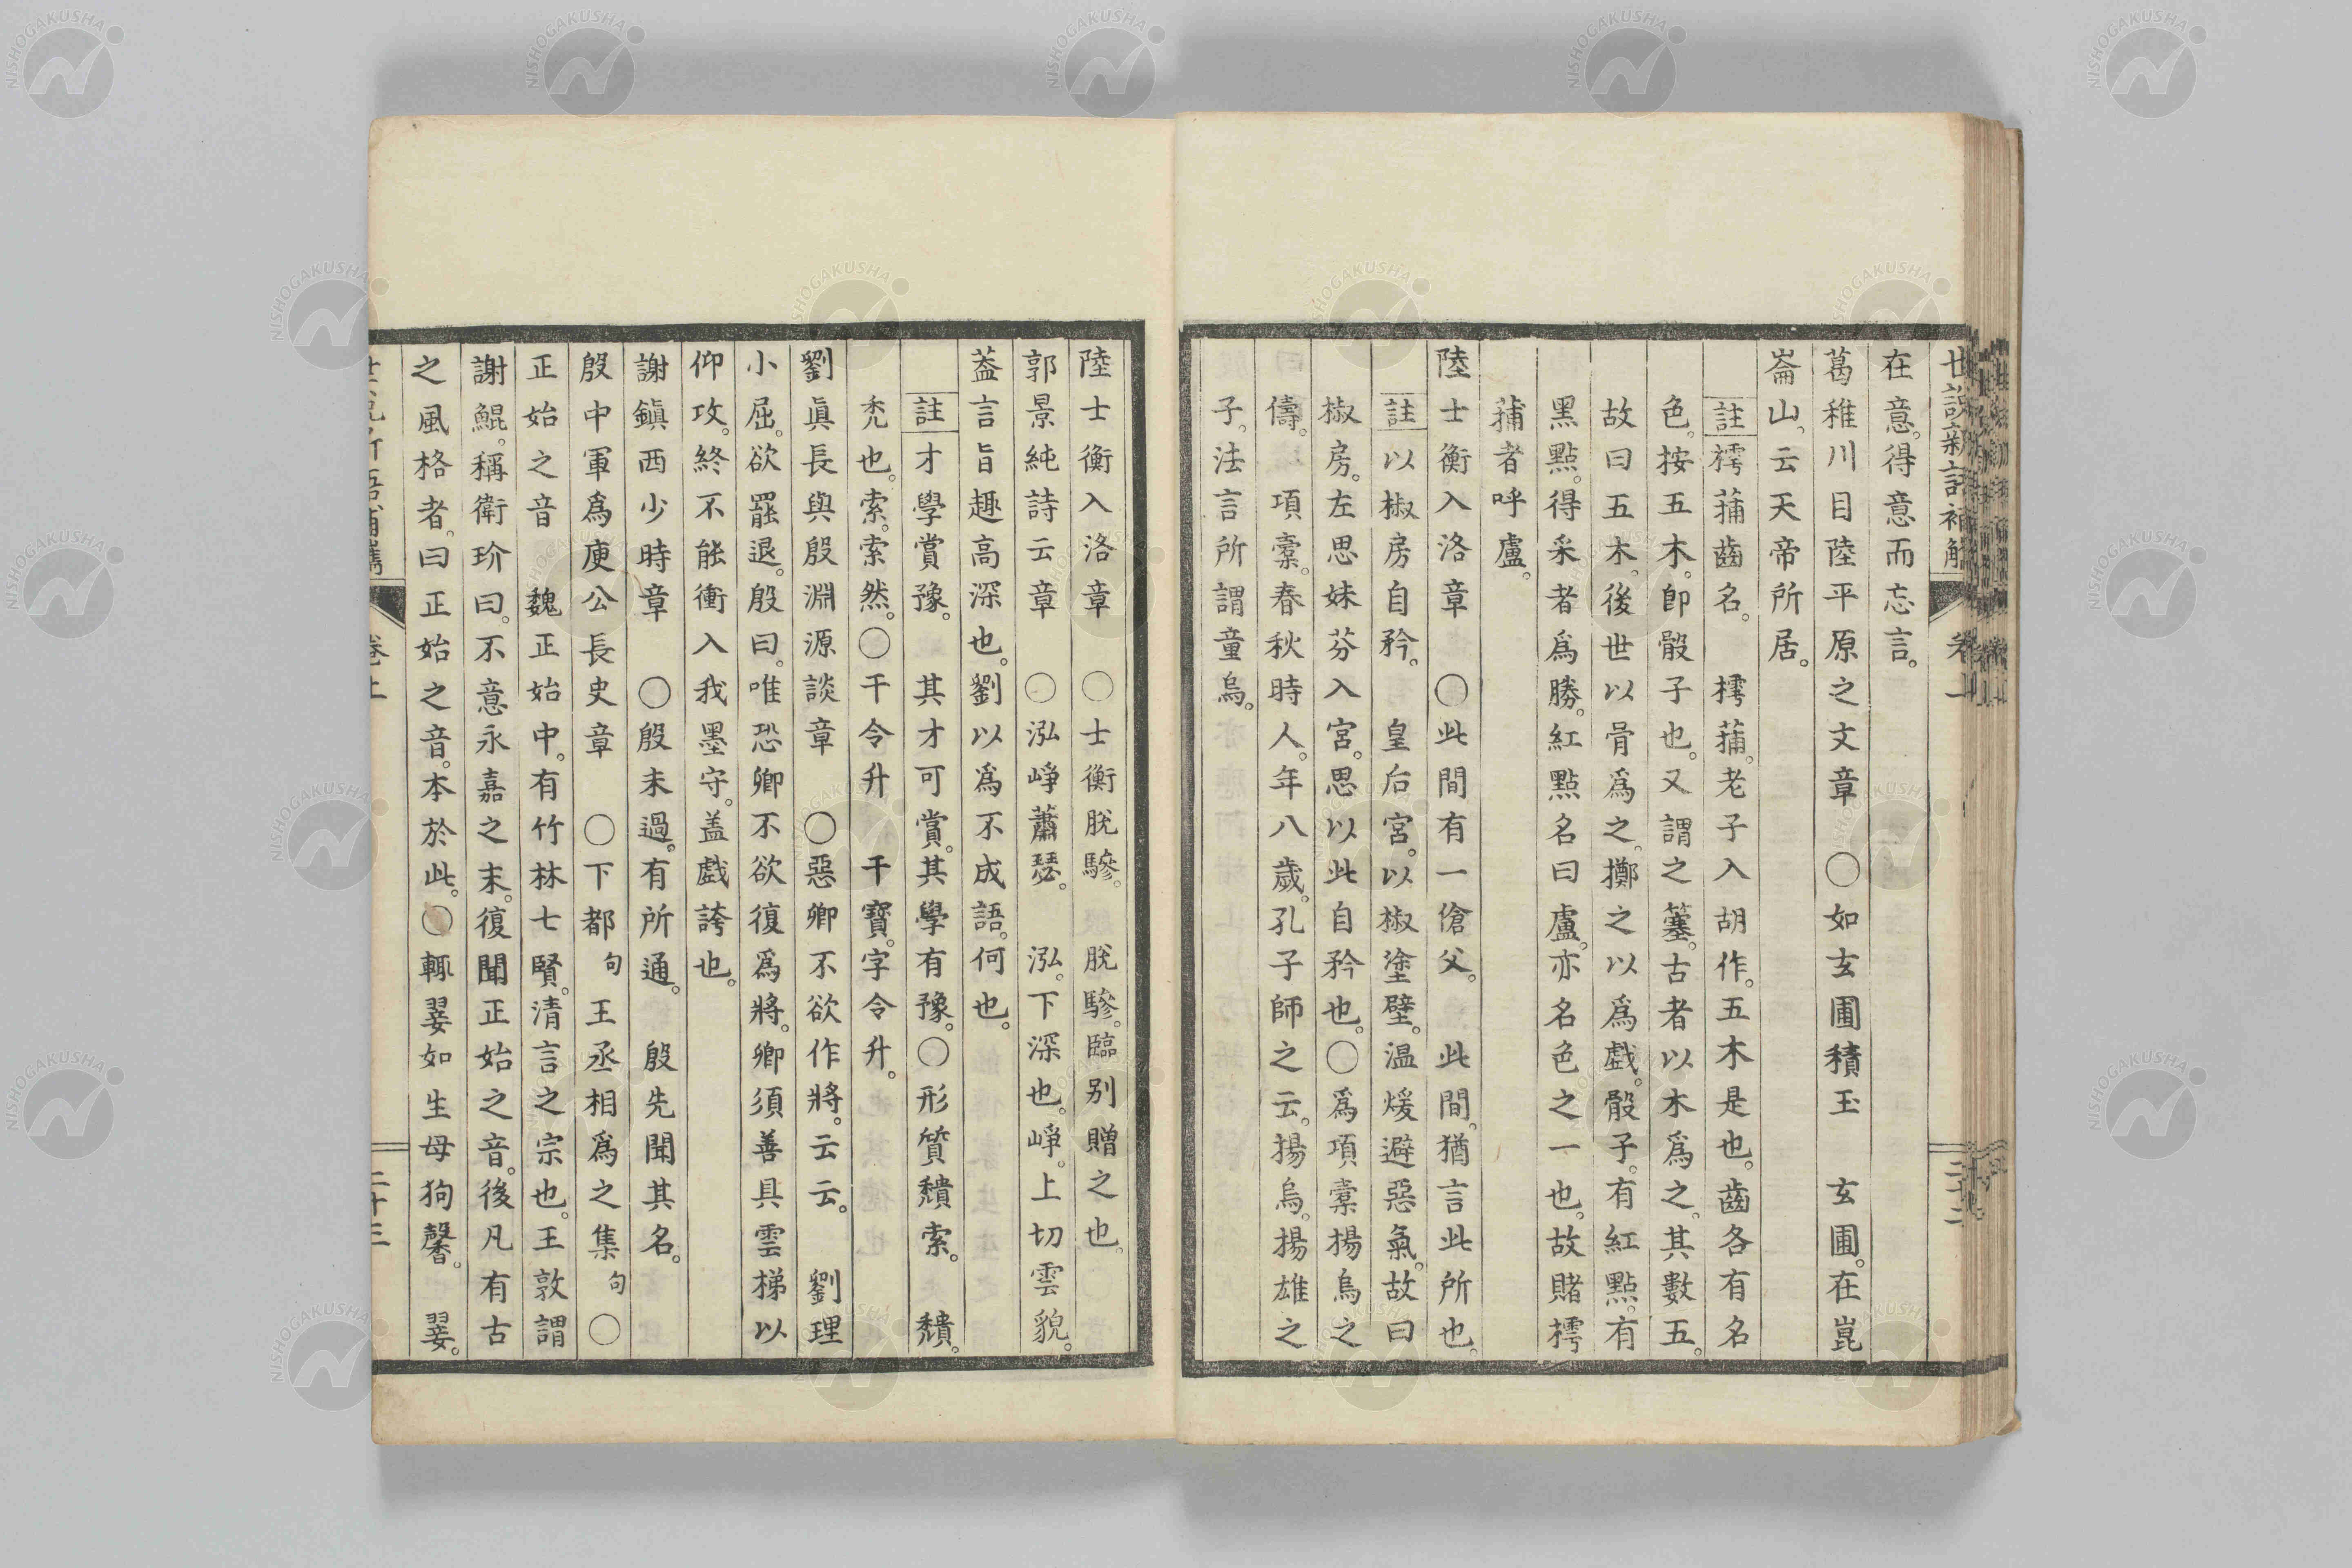 在意。得意而忘言。
葛稚川目陸平原之文章　〇如玄圃積玉　玄圃。在崑
崙山。云天帝所居。
註樗蒱齒名。　樗蒱。老子入胡作。五木是也。齒各有名
色。按五木。卽骰子也。又謂之簺。古者以木爲之。其數五。
故曰五木。後世以骨爲之。擲之以爲戲。骰子。有紅點。有
黑點。得采者爲勝。紅點名曰盧。亦名色之一也。故賭樗
蒱者呼盧。
陸士衡入洛章　〇此間有一傖父。　此間。猶言此所也。
註以椒房自矜。　皇后宮。以椒塗壁。温煖避惡氣。故曰
椒房。左思妹芬入宮。思以此自矜也。〇爲項橐揚烏之
儔。　項橐。春秋時人。年八歲。孔子師之云。揚烏。揚雄之
子。法言所謂童烏。
陸士衡入洛章　〇士衡脫驂。　脫驂。臨別贈之也。
郭景純詩云章　〇泓崢蕭瑟。　泓。下深也。崢。上切雲貌。
葢言旨趣高深也。劉以爲不成語。何也。
註才學賞豫。　其才可賞。其學有豫。〇形質穨索。　穨。
禿也。索。索然。〇干令升　干寶。字令升。
劉眞長與殷淵源談章　〇惡卿不欲作將。云云。　劉理
小屈。欲罷退。殷曰。唯恐卿不欲復爲將。卿須善具雲梯以
仰攻。終不能衝入我墨守。盖戲誇也。
謝鎭西少時章　〇殷未過。有所通。　殷先聞其名。
殷中軍爲庾公長史章　〇下都句王丞相爲之集句〇
正始之音　魏正始中。有竹林七賢。清言之宗也。王敦謂
謝鯤。稱衛玠曰。不意永嘉之末。復聞正始之音。後凡有古
之風格者。曰正始之音。本於此。〇輒翣如生母狗馨。　翣。
卷上
二十三